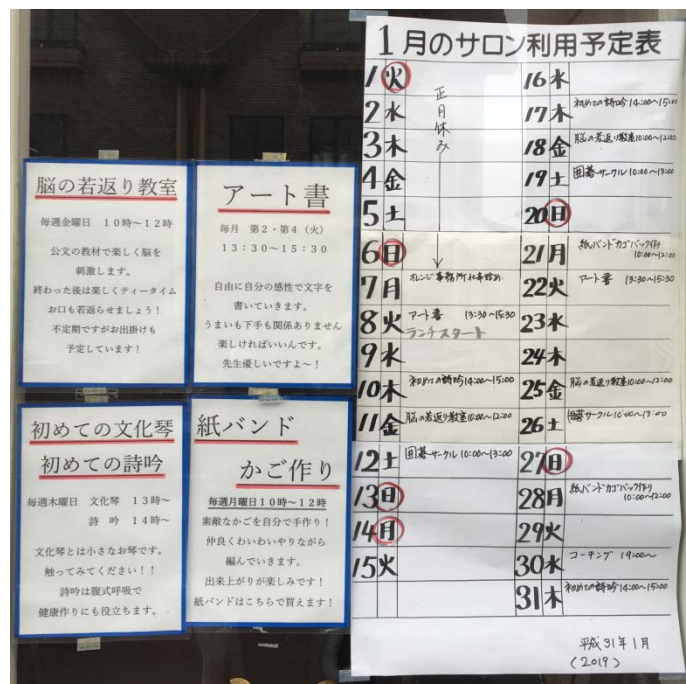 脳の若返り教室
毎週金曜日 10時~12時
公文の教材で楽しく脳を
刺激します。
終わった後は楽しくティータイム
お口も若返らせましょう!
不定期ですがお出掛けも
予定しています!
アート書
毎月 第2・第4(火)
13:30~15:30
自由に自分の感性で文字を
書いていきます。
うまいも下手も関係ありません
楽しければいいんです。
先生優しいですよ~!
初めての文化琴
初めての詩吟
毎週木曜日 文化琴 13時~
詩 吟 14時~
文化琴とは小さなお琴です。
触ってみてください!!
詩吟は腹式呼吸で
健康作りにも役立ちます。
紙バンド
かご作り
毎週月曜日10時~12時
素敵なかごを自分で手作り!
仲良くわいわいやりながら
編んでいきます。
出来上がりが楽しみです!
紙バンドはこちらで買えます!
1月のサロン利用予定表
1 火 正月休み
2 水
3 木
4 金
5 土
6 日
7 月 オレンジ事務所仕事始め
8 火 アート書 13:30~15:30
ランチスタート
9 水
10 木 初めての詩吟 14:00~15:00
11 金 脳の若返り教室 10:00~12:00
12 土 囲碁サークル 10:00~13:00
13 日
14 月
15 火
16 水
17 木 初めての詩吟 14:00~15:00
18 金 脳の若返り教室 10:00~12:00
19 土 囲碁サークル 10:00~13:00
20 日
21 月 紙バンドカゴバック作り
10:00~12:00
22 火 アート書 13:30~15:30
23 水
24 木
25 金 脳の若返り教室 10:00~12:00
26 土 囲碁サークル 10:00~13:00
27 日
28 月 紙バンドカゴバック作り
10:00~12:00
29 火
30 水 コーチング 19:00~
31 木 初めての詩吟 14:00~15:00
平成31年1月
(2019)